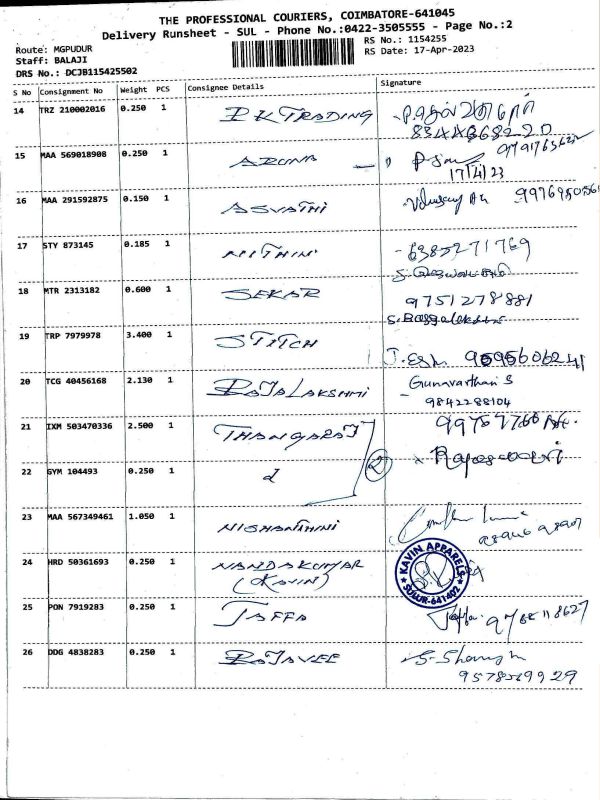 THE PROFESSIONAL COURIERS, COIMBATORE-641045
Delivery Runsheet - SUL - Phone No.:0422-3505555 - Page No.:2
Route: MGPUDUR
RS No.: 1154255
Staff: BALAJI
RS Date: 17-Apr-2023
DRS No.: DCJB115425502
S No Consignment No Weight PCS Consignee Details Signature
14 TRZ 210002016 0.250 1 P.K TRADING
15 MAA 569018908 0.250 1 ARUNA
17/4/23
16 MAA 291592875 0.150 1 ASVATHI
17 STY 873145 0.185 1 NITHIN 6385271769
18 MTR 2313182 0.600 1 SEKAR 9751278881
19 TRP 7979978 3.400 1 STITCH
20 TCG 40456168 2.130 1 RAJALAKSHMI Gunavarthan S
9842288104
21 IXM 503470336 2.500 1 THANGARAJ
22 GYM 104493 0.250 1 2 Rajeswari
23 MAA 567349461 1.050 1 NISHANTHINI
24 HRD 50361693 0.250 1 NANDAKUMAR
(KAVIN)
KAVIN APPARELS
SULUR-641402
25 PON 7919283 0.250 1 JAFFA
26 DDG 4838283 0.250 1 RAJAVEE
9578569929